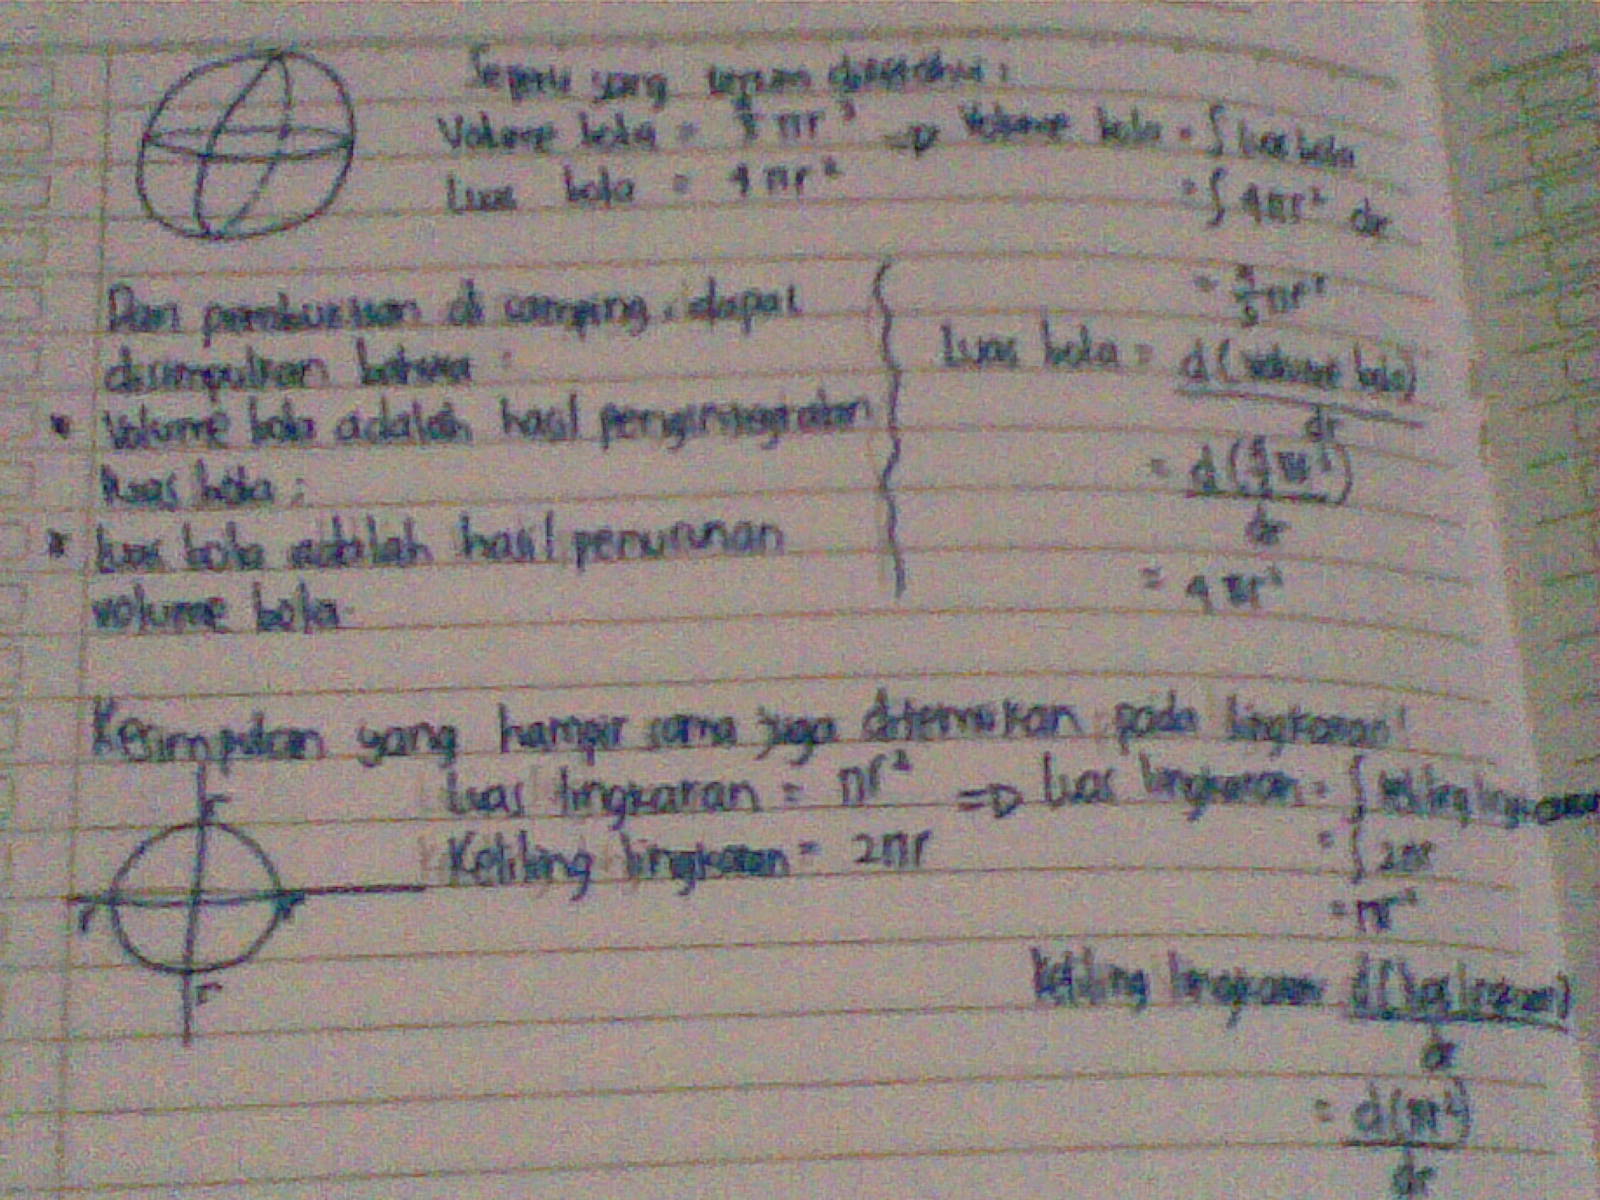 Seperti yang
Volume bola = 4/3 πr³ => Volume bola = ∫ luas bola
Luas bola = 4πr²
= ∫ 4πr² dr
= 4/3 πr³
Dari pembuktian di samping, dapat
disimpulkan bahwa :
* Volume bola adalah hasil pengintegralan
luas bola ;
* Luas bola adalah hasil penurunan
volume bola.
Luas bola = d(volume bola)
dr
= d(4/3 πr³)
dr
= 4πr²
Kesimpulan yang hampir sama juga ditemukan pada lingkaran!
Luas lingkaran = πr² => Luas lingkaran = ∫ keliling lingkaran
Keliling lingkaran = 2πr
= ∫ 2πr
= πr²
r
r
r
Keliling lingkaran d(luas lingkaran)
dr
= d(πr²)
dr